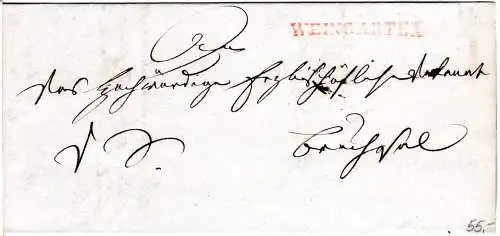 WEINGARTEN
An
Das Hochwürdige Erzbischöfliche Dekanat
Bruchsal
55.-